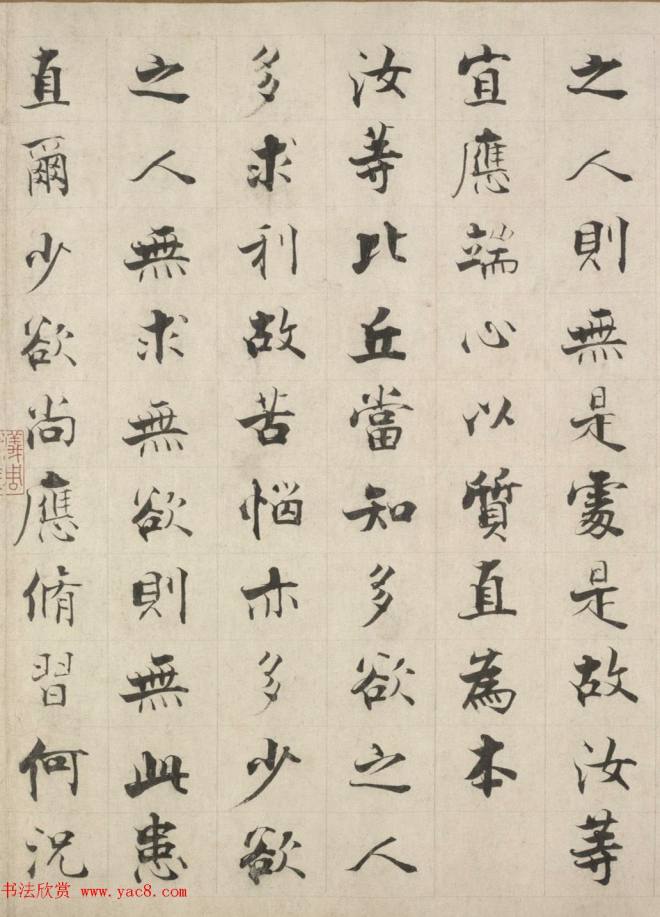 之人則無是處是故汝等
宜應端心以質直為本
汝等比丘當知多欲之人
多求利故苦惱亦多少欲
之人無求無欲則無此患
直爾少欲尚應脩習何況
书法欣赏 www.yac8.com